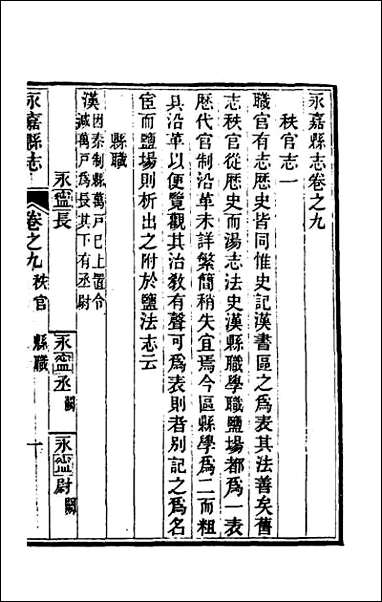 永嘉縣志卷之九
秩官志一
職官有志歷史皆同惟史記漢書區之爲表其法善矣舊
志秩官從歷史而湯志法史漢縣職學職鹽場都爲一表
歷代官制沿革未詳繁簡稍失宜焉今區縣學爲二而粗
具沿革以便覽觀其治敎有聲可爲表則者別記之爲名
宦而鹽場則析出之附於鹽法志云
縣職
漢因秦制縣萬戶已上置令
減萬戶爲長其下有丞尉
永寧長
永寧丞闕
永寧尉闕
永嘉縣志
卷之九 秩官 縣職
一